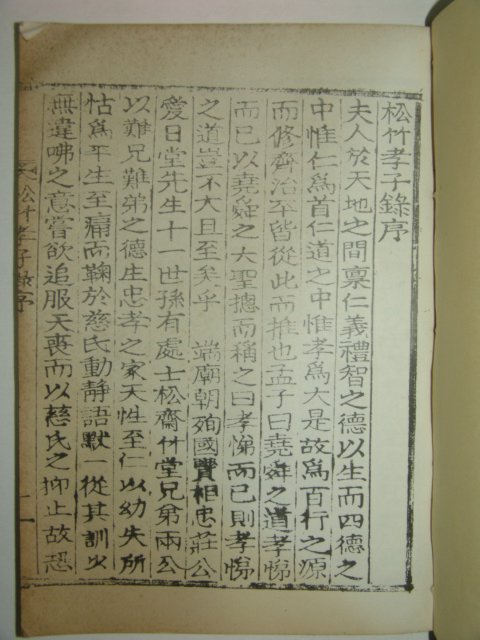 松竹孝子錄序
夫人於天地之間稟仁義禮智之德以生而四德之
中惟仁爲首仁道之中惟孝爲大是故爲百行之源
而修齊治平皆從此而推也孟子曰堯舜之道孝悌
而已以堯舜之大聖摠而稱之曰孝悌而已則孝悌
之道豈不大且至矣乎 端廟朝殉國賢相忠莊公
愛日堂先生十一世孫有處士松齋竹堂兄弟兩公
以難兄難弟之德庄忠孝之家天性至仁以幼失所
怙爲平生至痛而鞠於慈氏動靜語默一從其訓少
無違咈之意嘗欲追服天喪而以慈氏之抑止故恐
松竹孝子錄序